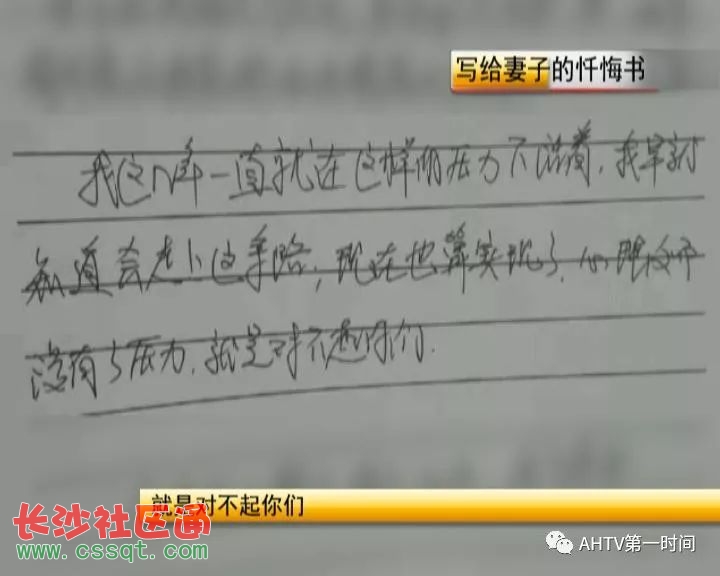 写给妻子的忏悔书
我这几年一直就在这样的压力下活着，我早就
知道会走上这条路，现在也算实现了，心跟
没有了压力，就是对不起你们．
就是对不起你们
长沙社区通
www.cssqt.com
AHTV第一时间